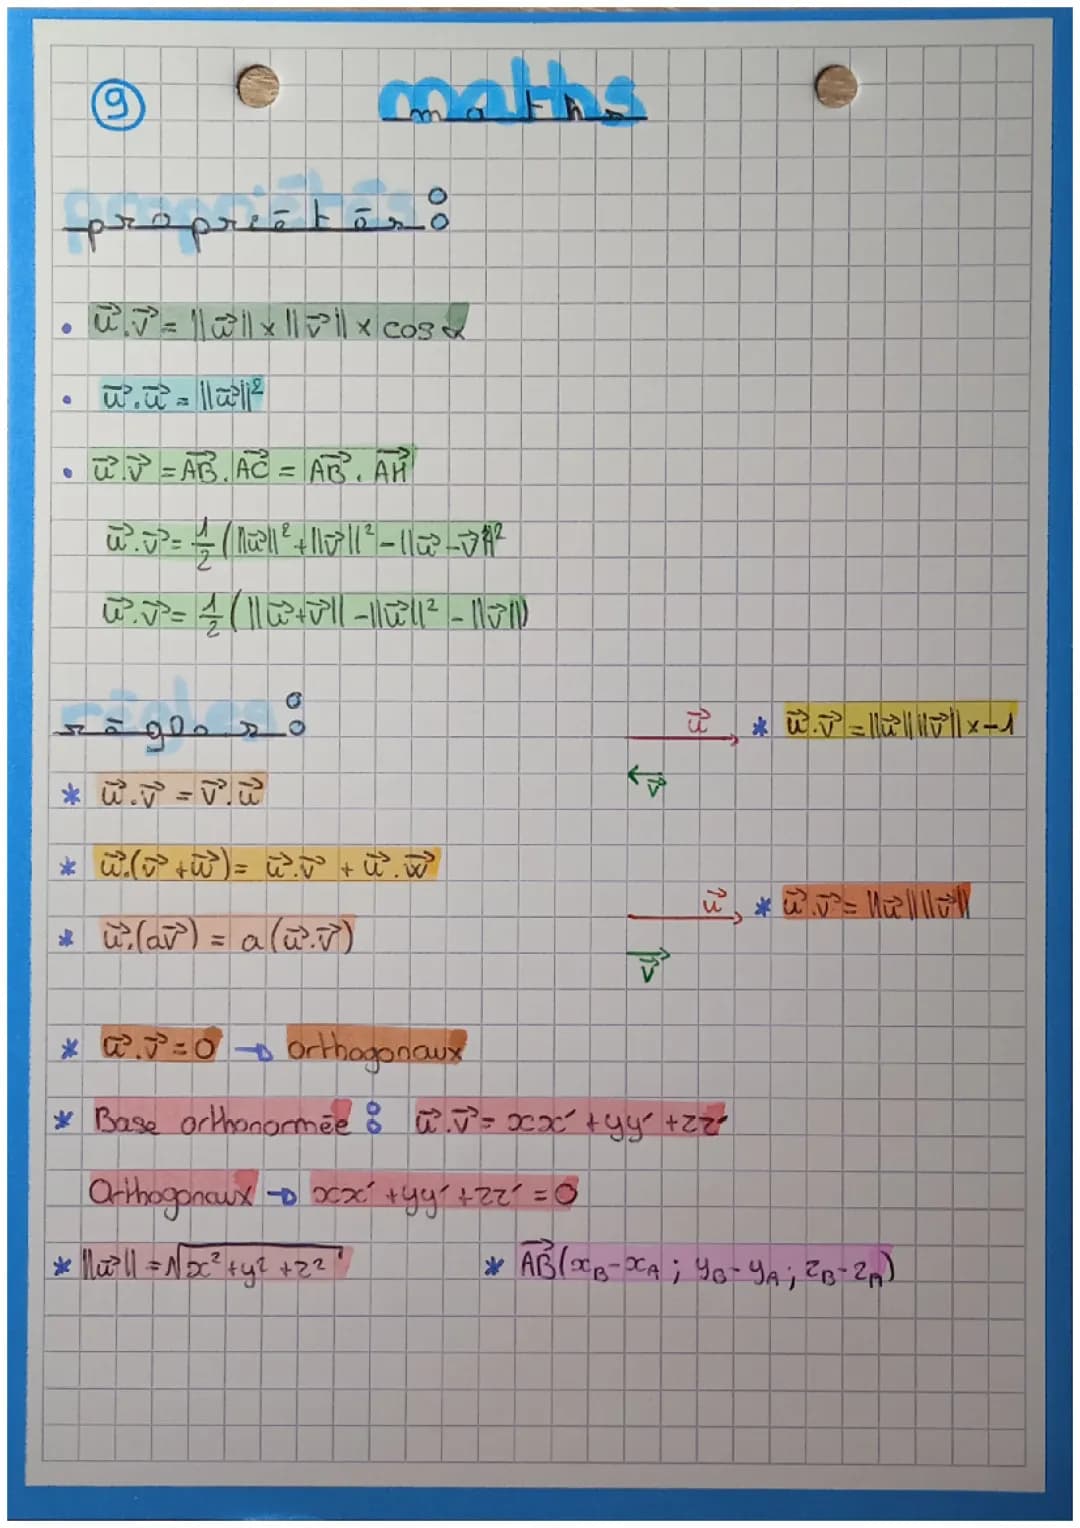 9
maths
propriétés :
• u⃗.v⃗ = ||u⃗|| x ||v⃗|| x cos α
• u⃗.u⃗ = ||u⃗||²
• u⃗.v⃗ = AB⃗.AC⃗ = AB⃗.AH⃗
u⃗.v⃗ = 1/2 (||u⃗||² + ||v⃗||² - ||u⃗ - v⃗||²
u⃗.v⃗ = 1/2 (||u⃗+v⃗|| - ||u⃗||² - ||v⃗||)
règles :
* u⃗.v⃗ = v⃗.u⃗
* u⃗.(v⃗ + w⃗) = u⃗.v⃗ + u⃗.w⃗
* u⃗.(av⃗) = a(u⃗.v⃗)
u⃗ * u⃗.v⃗ = ||u⃗|| ||v⃗|| x -1
v⃗
u⃗ * u⃗.v⃗ = ||u⃗|| ||v⃗||
v⃗
* u⃗.v⃗ = 0 → orthogonaux
* Base orthonormée : u⃗.v⃗ = xx' + yy' + zz'
Orthogonaux → xx' + yy' + zz' = 0
* ||u⃗|| = √x² + y² + z²
* AB⃗ (xB - xA ; yB - yA ; zB - zA)